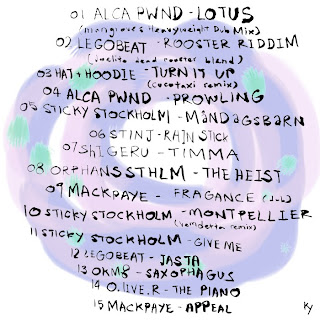 01 ALCA PWND - LOTUS
(mangrove's Heavyweight Dub Mix)
02 LEGOBEAT - ROOSTER RIDDIM
(joelito dead rooster blend)
03 HAT + HOODIE - TURN IT UP
(cocotaxi remix)
04 ALCA PWND - PROWLING
05 STICKY STOCKHOLM - MÅNDAGSBARN
06 STINJ - RAIN STICK
07 SHIGERU - TIMMA
08 ORPHANS STHLM - THE HEIST
09 MACKPAYE - FRAGANCE (dub)
10 STICKY STOCKHOLM - MONTPELLIER
(vemdetta remix)
11 STICKY STOCKHOLM - GIVE ME
12 LEGOBEAT - JASTA
13 OKM8 - SAXOPHAGUS
14 O.LIVE.R - THE PIANO
15 MACKPAYE - APPEAL
Ky